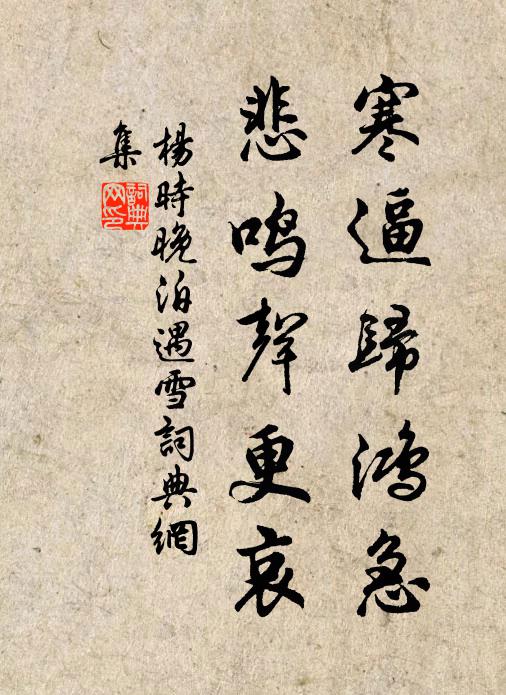 寒逼歸鴻急
悲鳴聲更哀
楊時晚泊遇雪詞典網
集
詞典
网印